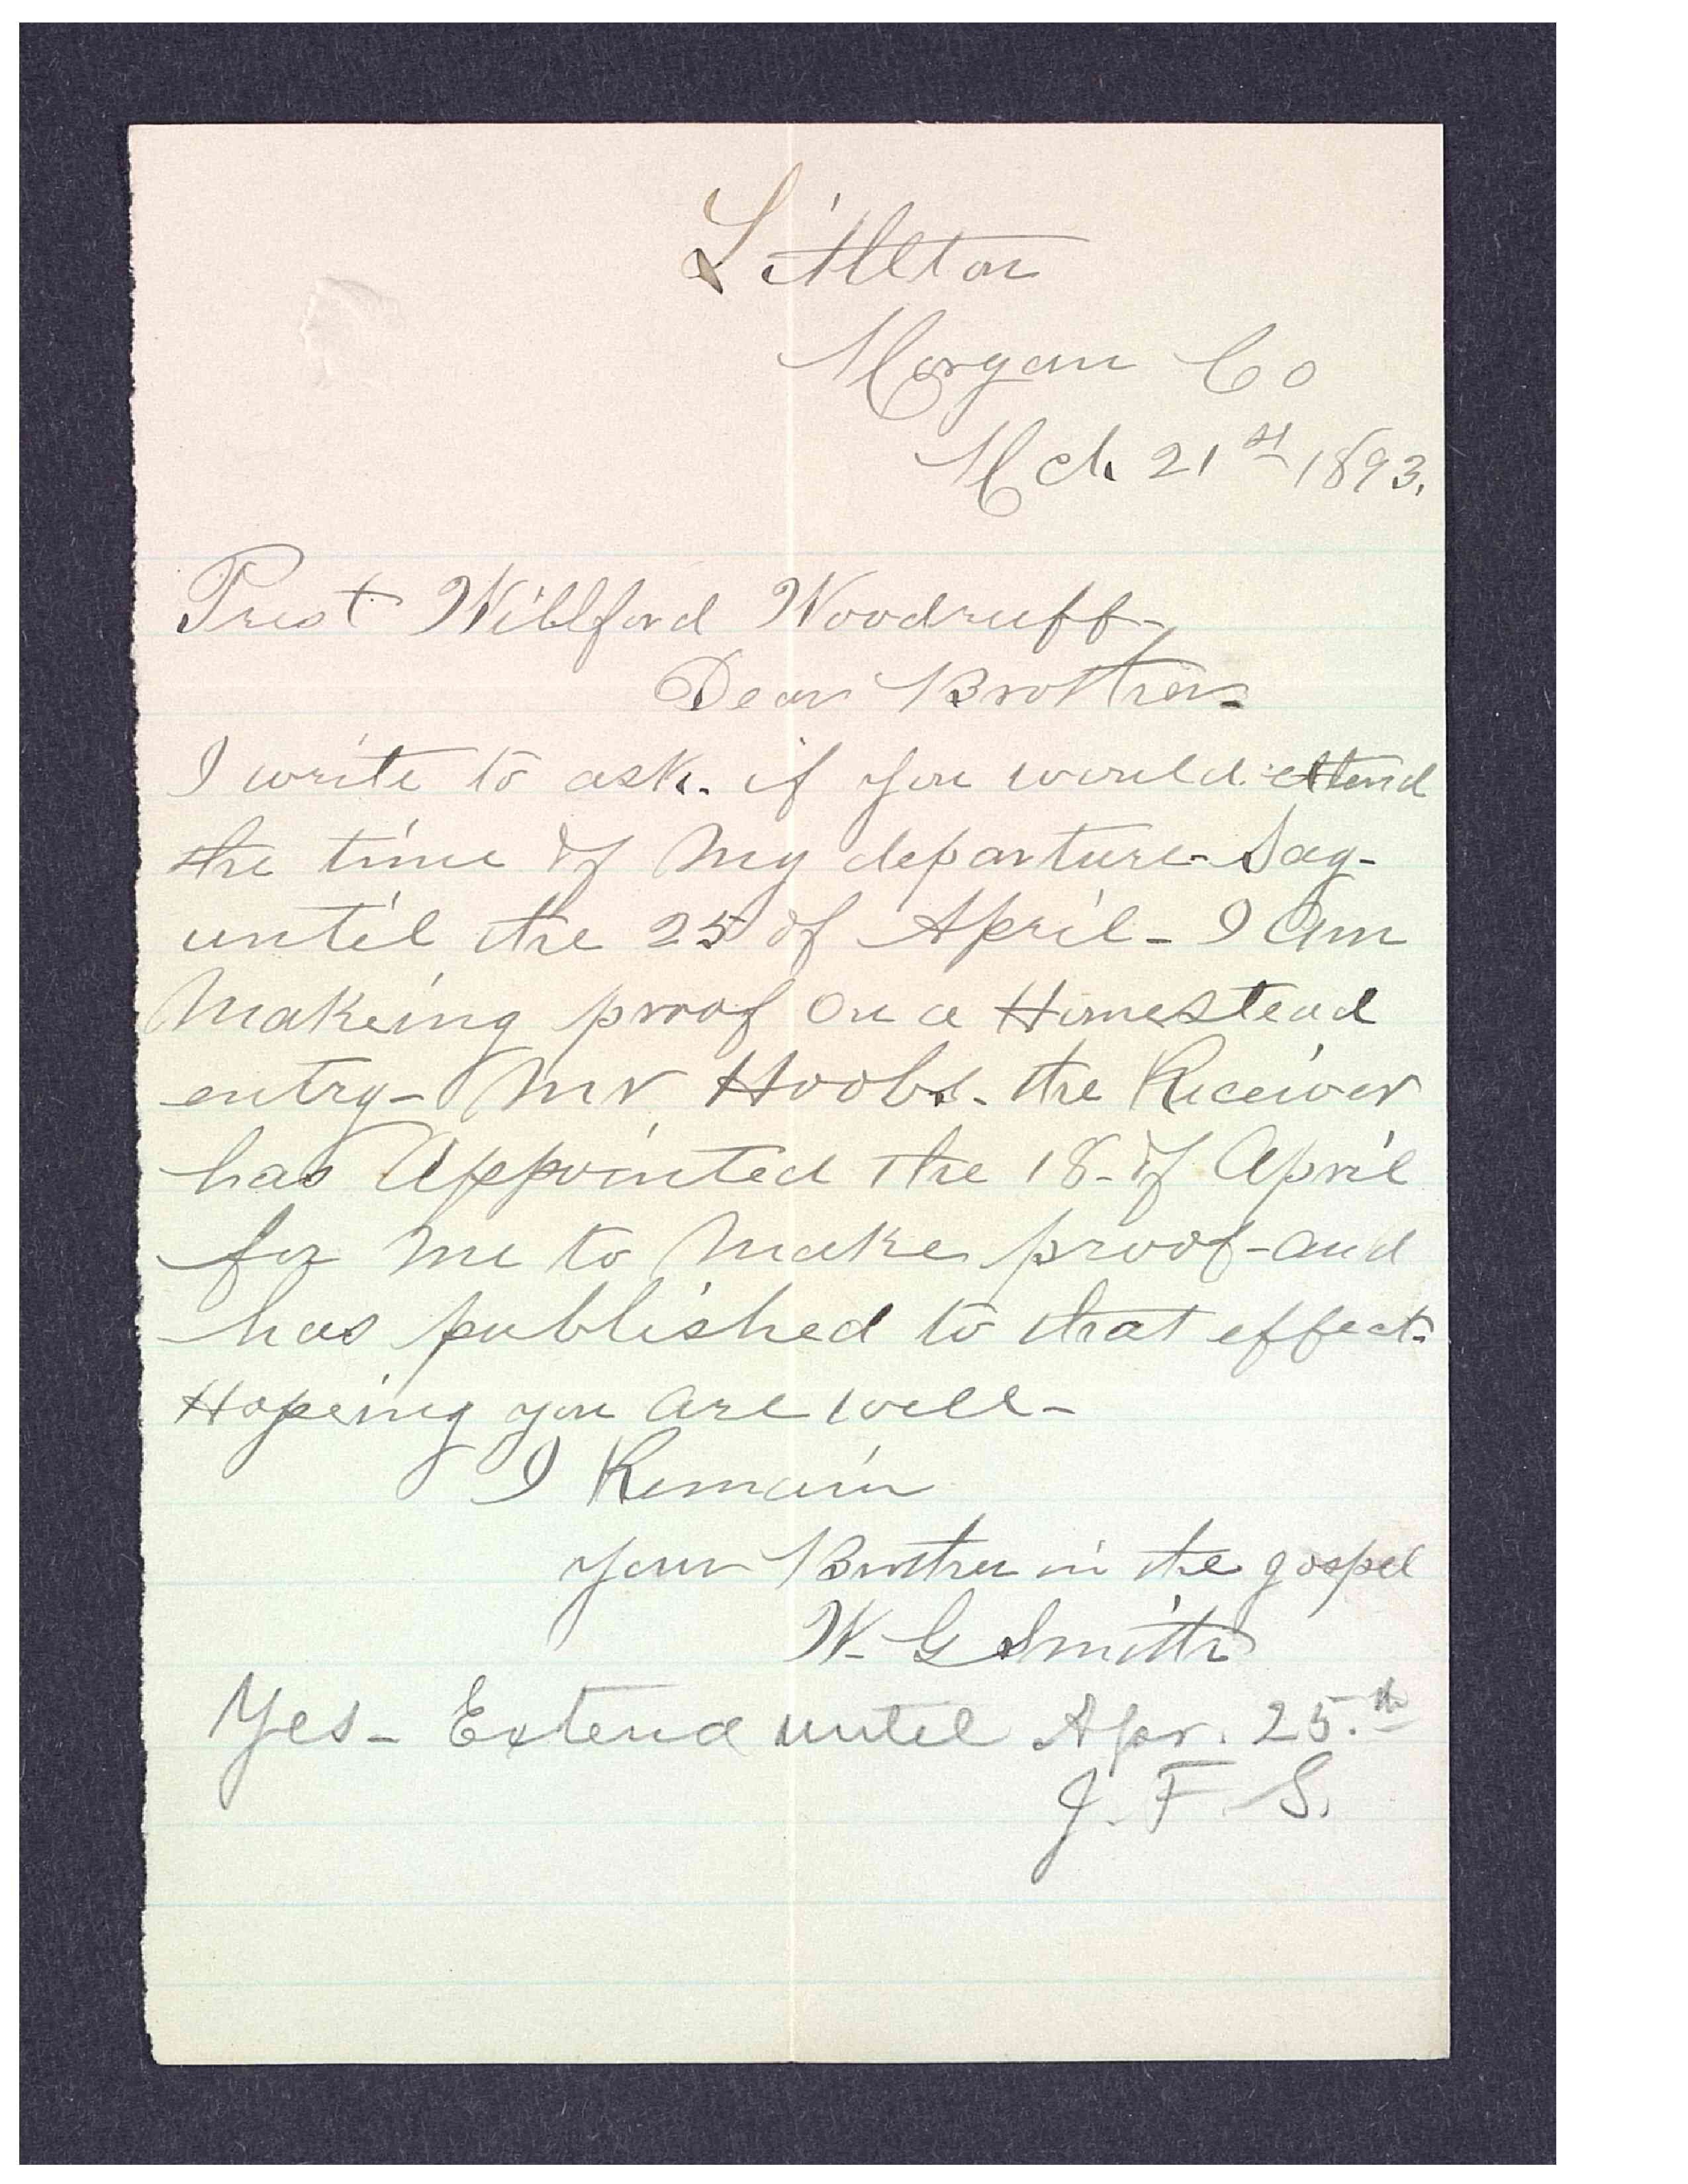 Littleton
Morgan Co
Mch 21st 1893.
Prest Willford Woodruff-
Dear Brother-
I write to ask. if you would extend
the time of My departure- Say-
until the 25 of April- I Am
Makeing proof on a Homestead
entry- Mr Hoobs- the Receiver
has Appointed the 18- of April
for Me to Make proof- and
has published to that effect-
Hopeing you are well-
I Remain
your Brother in the gospel
W- G Smith
Yes- Extend until Apr. 25.th
J. F. S.